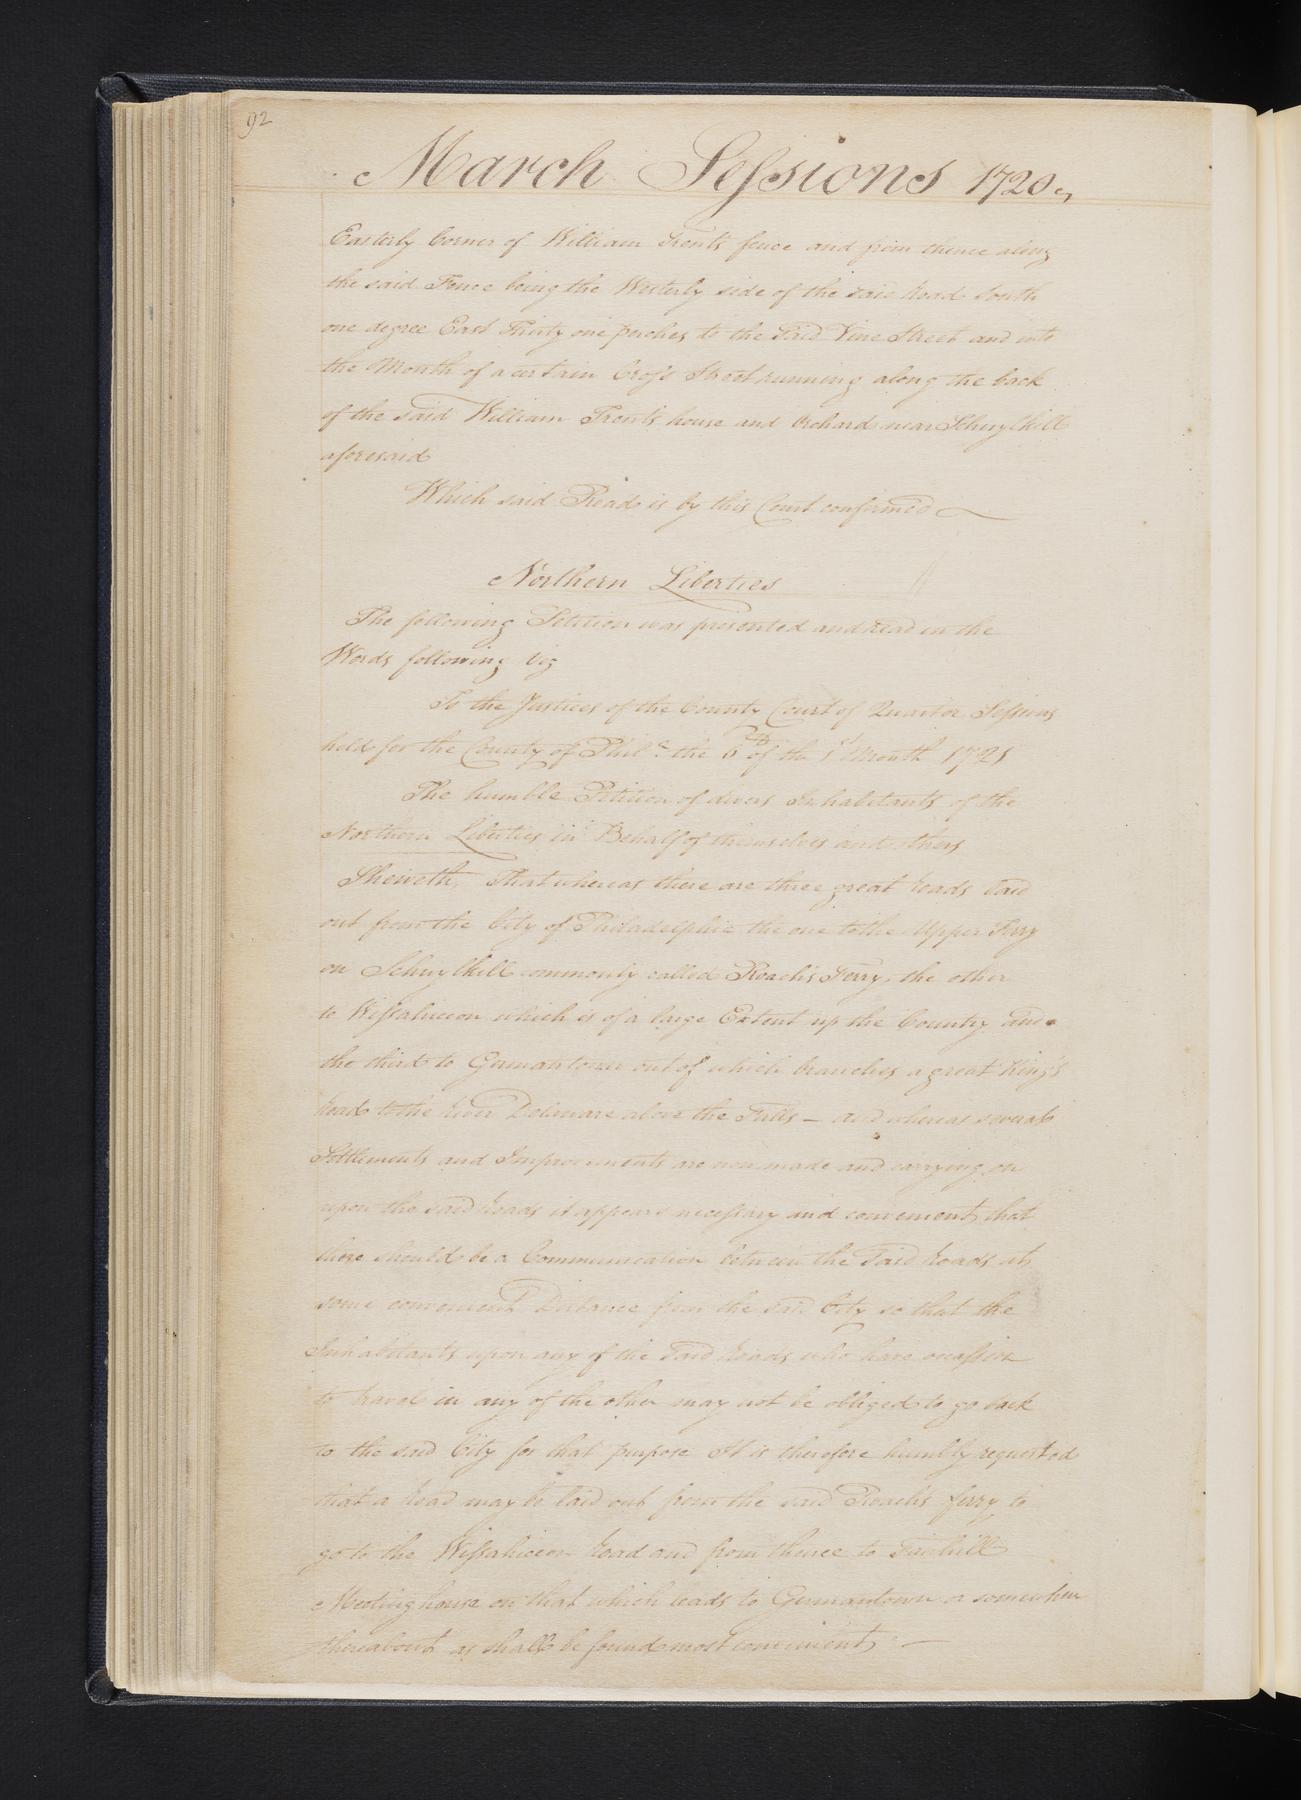 92
March Sessions 1720
Easterly Corner of William Trents fence and from thence along
the said Fence being the Westerly side of the said Road South
one degree East Thirty one perches to the said Vine Street and into
the Mouth of a certain Cross Street running along the back
of the said William Trents house and Orchard near Schuylkill
aforesaid
Which said Road is by this Court confirmed
Northern Liberties
The following Petition was presented and read in the
Words following Viz
To the Justices of the County Court of Quarter Sessions
held for the County of Phila: the 6th of the 1st Month 1721
The humble Petition of divers Inhabitants of the
Northern Liberties in Behalf of themselves and others
Sheweth, That whereas there are three great Roads laid
out from the City of Philadelphia the one to the Upper Ferry
on Schuylkill commonly called Roach's Ferry, the other
to Wissahiccon which is of a large Extent up the Country and
the third to Germantown out of which branches a great King's
Road to the River Delaware above the Falls – and whereas several
Settlements and Improvements are now made and carrying on
upon the said Roads it appears necessary and convenient, that
there should be a Communication between the said Roads at
some convenient Distance from the said City so that the
Inhabitants upon any of the said Roads who have occasion
to travel in any of the other may not be obliged to go back
to the said City for that purpose It is therefore humbly requested
that a Road may be laid out from the said Roach's ferry to
go to the Wissahiccon Road and from thence to Fairhill
Meeting house on that which leads to Germantown or somewhere
thereabout as shall be found most convenient, –